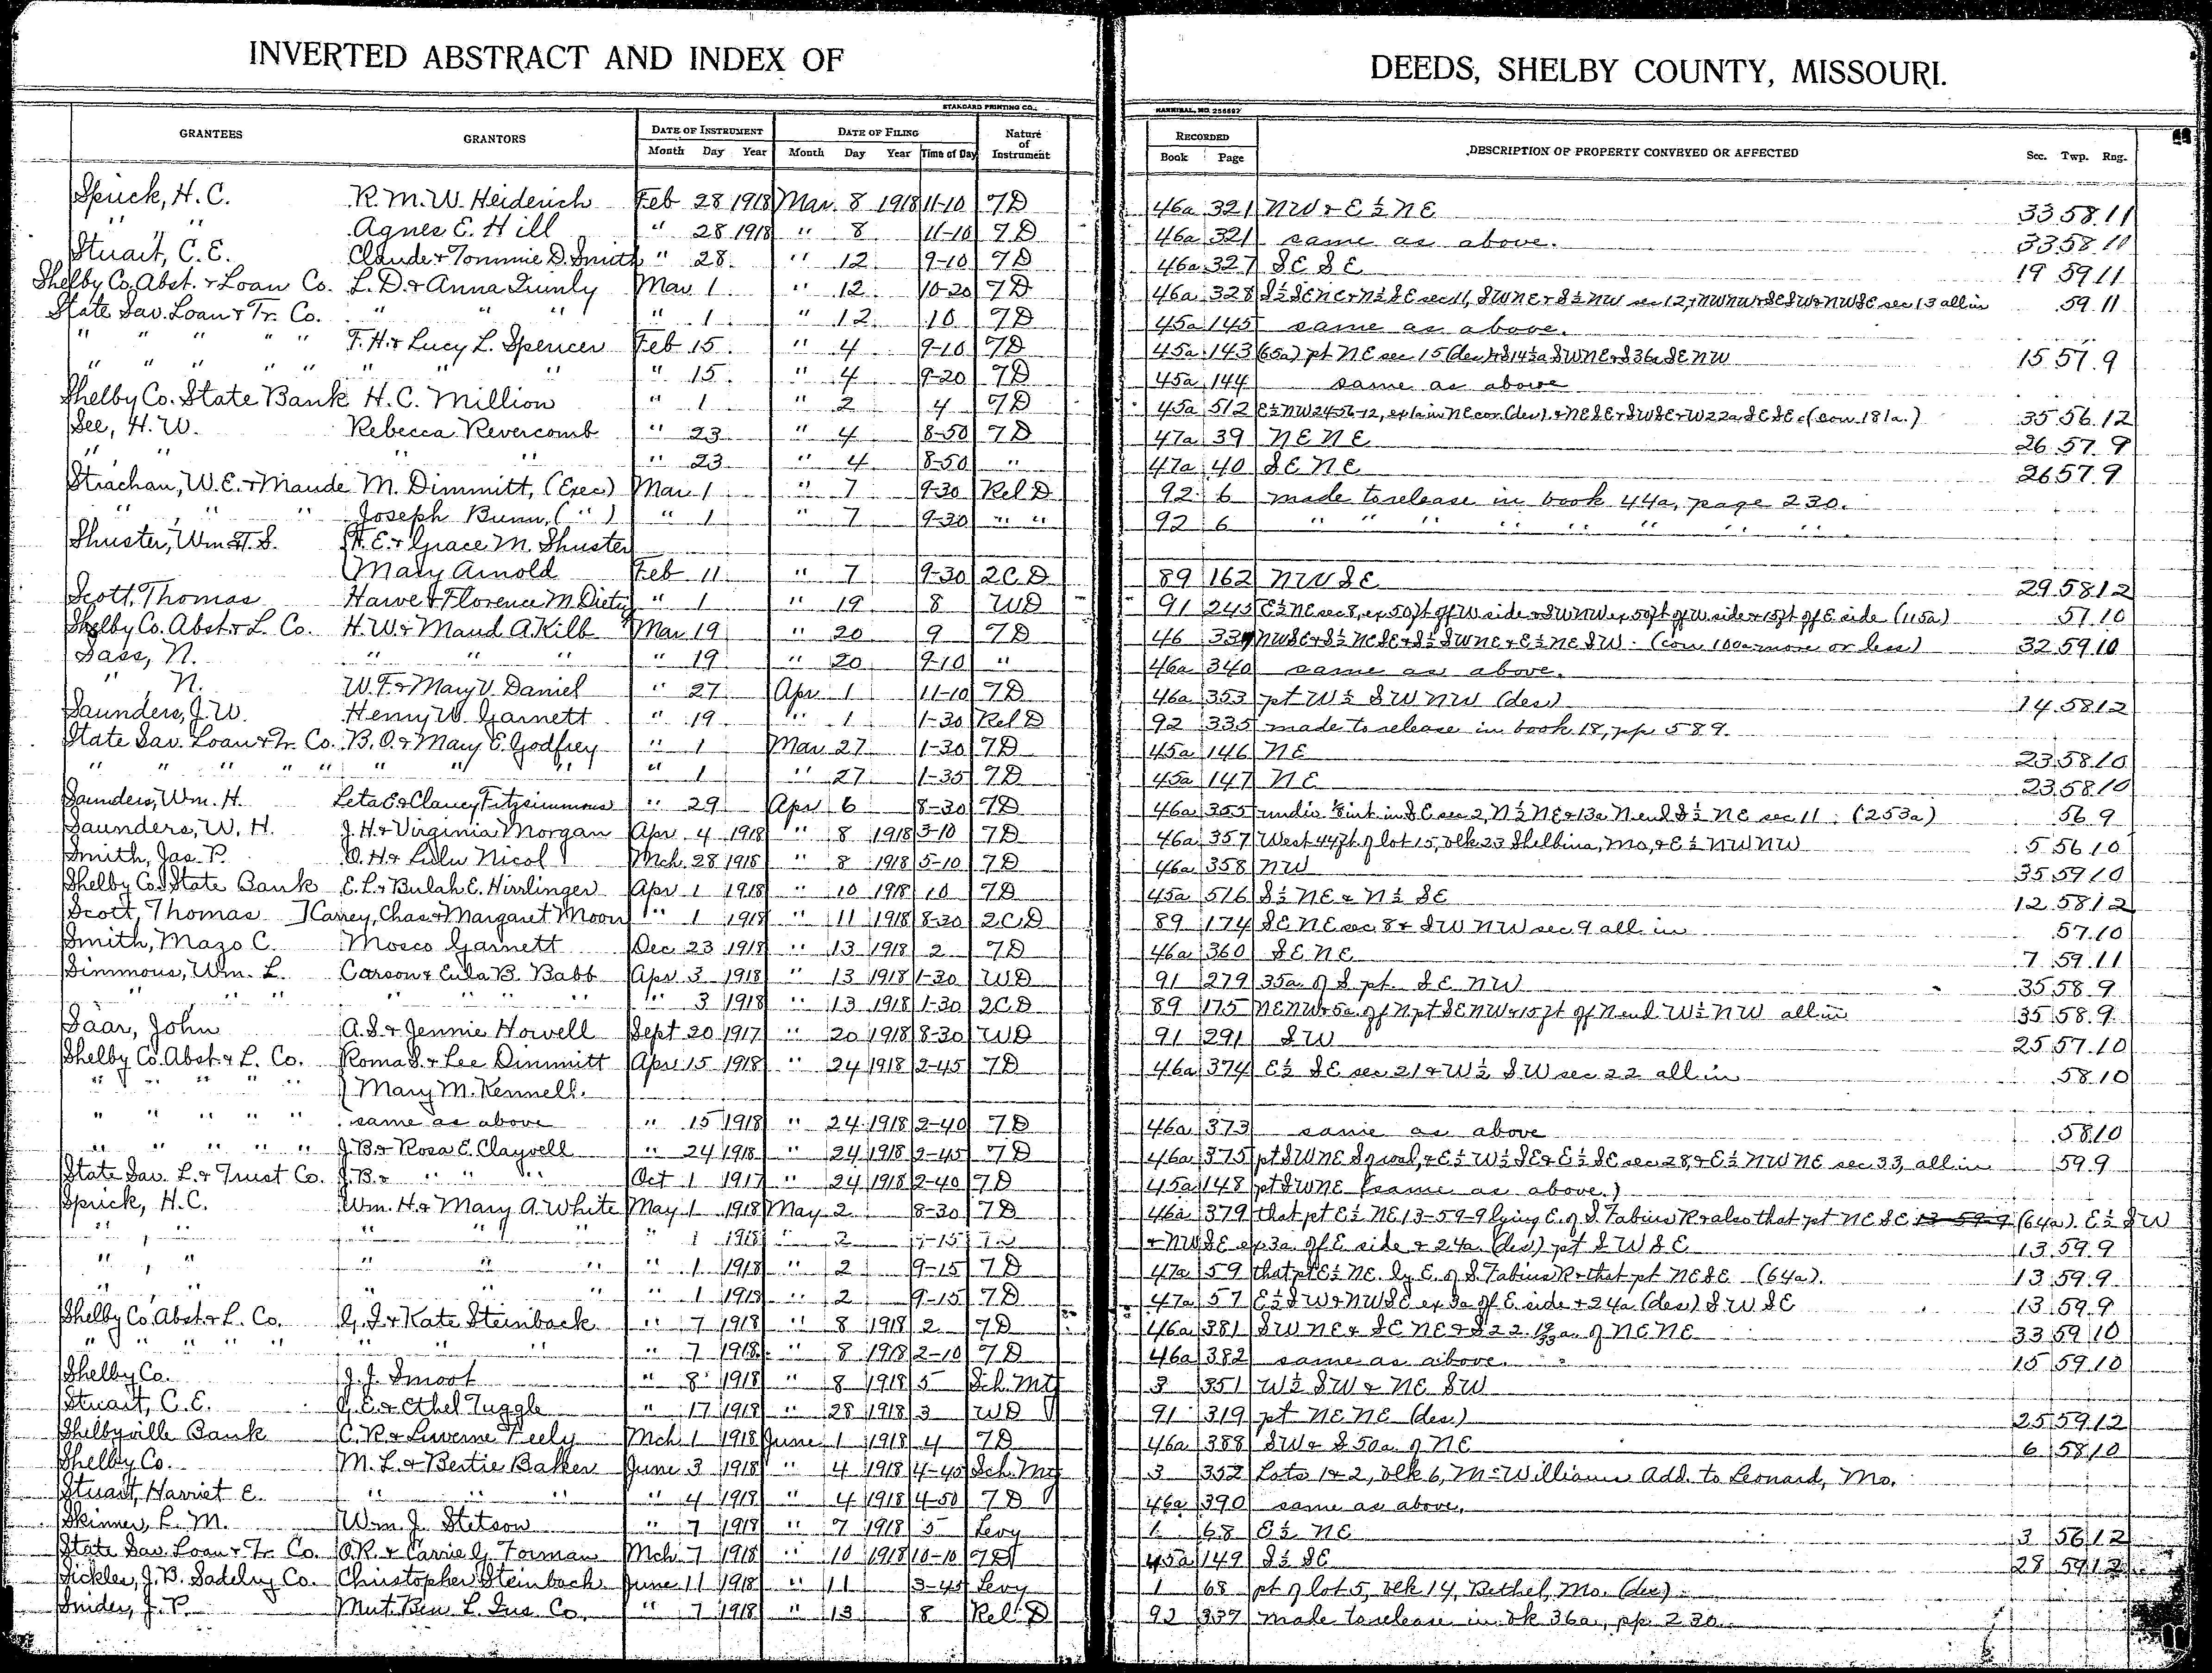 INVERTED ABSTRACT AND INDEX OF DEEDS, SHELBY COUNTY, MISSOURI.
STANDARD PRINTING CO., HANNIBAL, MO. 256687
GRANTEES GRANTORS DATE OF INSTRUMENT DATE OF FILING Nature of Instrument RECORDED DESCRIPTION OF PROPERTY CONVEYED OR AFFECTED Sec. Twp. Rng.
Month Day Year Month Day Year Time of Day Book Page
Sprick, H. C. R. M. W. Heiderich Feb 28 1918 Mar. 8 1918 11-10 TD 46a 321 NW & E½ NE 33 58 11
" " Agnes E. Hill " 28 1918 " 8 11-10 TD 46a 321 same as above. 33 58 10
Stuart, C. E. Claude & Tommie D. Smith " 28 " 12 9-10 TD 46a 327 SE SE 19 59 11
Shelby Co. Abst. & Loan Co. L. D. & Anna Quinly Mar 1 " 12 10-20 TD 46a 328 S½ SE NE & N½ SE sec 11, SW NE & S½ NW sec 12, & NW NW & SE SW & NW SE sec 13 all in 59 11
State Sav. Loan & Tr. Co. " " " " 1 " 12 10 TD 45a 145 same as above.
" " " " " F. H. & Lucy L. Spencer Feb 15 " 4 9-10 TD 45a 143 (65a) pt NE sec 15 (des) & S14½a SW NE & S36a SE NW 15 57 9
" " " " " " " " " 15 " 4 9-20 TD 45a 144 same as above
Shelby Co. State Bank H. C. Million " 1 " 2 4 TD 45a 512 E½ NW 24-56-12, ex 1a in NE cor (des) & NE SE & SW SE & W 22a SE SE (con 181a.) 35 56 12
See, H. W. Rebecca Revercomb " 23 " 4 8-50 TD 47a 39 NE NE 26 57 9
" " " " " 23 " 4 8-50 " 47a 40 SE NE 26 57 9
Strachan, W. E. & Maude M. Dimmitt, (Exec) Mar 1 " 7 9-30 Rel D 92 6 made to release in book 44a, page 230.
" " " Joseph Bunn, ( " ) " 1 " 7 9-30 " " 92 6 " " " " " " " "
Shuster, Wm & T. S. H. E. & Grace M. Shuster
Mary Arnold Feb 11 " 7 9-30 2CD 89 162 NW SE 29 58 12
Scott, Thomas Harve & Florence M. Diety " 1 " 19 8 WD 91 243 E½ NE sec 8, ex 50ft off W side & SW NW ex 50ft off W side & 15ft off E side (115a) 57 10
Shelby Co. Abst & L. Co. H. W. & Maud A. Kilb Mar 19 " 20 9 TD 46 339 NW SE & S½ NE SE & S½ SW NE & E½ NE SW (con 100a more or less) 32 59 10
Sass, N. " " " " 19 " 20 9-10 " 46a 340 same as above.
" , N. W. T. & Mary V. Daniel " 27 Apr 1 11-10 TD 46a 353 pt W½ SW NW (des) 14 58 12
Saunders, J. W. Henry W. Garnett " 19 " 1 1-30 Rel D 92 335 made to release in book 18, pp 589.
State Sav. Loan & Tr. Co. B. O. & Mary E. Godfrey " 1 Mar 27 1-30 TD 45a 146 NE 23 58 10
" " " " " " " " " 1 " 27 1-35 TD 45a 147 NE 23 58 10
Saunders, Wm. H. Leta E & Clancy Fitzsimmons " 29 Apr 6 8-30 TD 46a 355 undiv ⅛ int in SE sec 2, N½ NE & 13a N end S½ NE sec 11 (253a) 56 9
Saunders, W. H. J. H. & Virginia Morgan Apr. 4 1918 " 8 1918 3-10 TD 46a 357 West 44ft of lot 15, blk 23 Shelbina, Mo, & E½ NW NW 5 56 10
Smith, Jas. P. O. H. & Lulu Nicol Mch. 28 1918 " 8 1918 5-10 TD 46a 358 NW 35 59 10
Shelby Co. State Bank E. L. & Bulah E. Hirrlinger Apr 1 1918 " 10 1918 10 TD 45a 516 S½ NE & N½ SE 12 58 12
Scott, Thomas Carrey, Chas & Margaret Moon " 1 1918 " 11 1918 8-30 2CD 89 174 SE NE sec 8 & SW NW sec 9 all in 57 10
Smith, Mazo C. Mosco Garnett Dec 23 1918 " 13 1918 2 TD 46a 360 SE NE 7 59 11
Simmons, Wm. L. Carson & Eula B. Babb Apr 3 1918 " 13 1918 1-30 WD 91 279 35a. of S pt. SE NW 35 58 9
" " " " " " " " 3 1918 " 13 1918 1-30 2CD 89 175 NE NW & 5a of N pt SE NW & 15ft of N end W½ NW all in 35 58 9
Saar, John A. S. & Jennie Howell Sept 20 1917 " 20 1918 8-30 WD 91 291 SW 25 57 10
Shelby Co. Abst. & L. Co. Roma S. & Lee Dimmitt Apr 15 1918 " 24 1918 2-45 TD 46a 374 E½ SE sec 21 & W½ SW sec 22 all in 58 10
" " " " " Mary M. Kennell.
" " " " " same as above " 15 1918 " 24 1918 2-40 TD 46a 373 same as above 58 10
" " " " " J. B. & Rosa E. Clayvell " 24 1918 " 24 1918 2-45 TD 46a 375 pt SW NE S of road, & E½ W½ SE & E½ SE sec 28, & E½ NW NE sec 33, all in 59 9
State Sav. L. & Trust Co. J. B. & " " " Oct 1 1917 " 24 1918 2-40 TD 45a 148 pt SW NE (same as above.)
Sprick, H. C. Wm. H. & Mary A. White May 1 1918 May 2 8-30 TD 46a 379 that pt E½ NE 13-59-9 lying E. of S. Fabius R & also that pt NE SE 13-59-9 (64a). E½ SW
" " " " " " 1 1918 " 2 9-15 TD & NW SE ex 3a. off E side & 24a. (des) pt SW SE 13 59 9
" , " " " " " 1 1918 " 2 9-15 TD 47a 59 that pt E½ NE. ly E. of S. Fabius R & that pt NE SE (64a). 13 59 9
" , " " " " " 1 1918 " 2 9-15 TD 47a 57 E½ SW & NW SE ex 3a off E. side & 24a (des) SW SE 13 59 9
Shelby Co. Abst. & L. Co. G. I. & Kate Steinback " 7 1918 " 8 1918 2 TD 46a 381 SW NE & SE NE & S 22 a. of NE NE 33 59 10
" " " " " " " " " 7 1918 " 8 1918 2-10 TD 46a 382 same as above. 15 59 10
Shelby Co. J. J. Smoot " 8 1918 " 8 1918 5 Sch. Mtg 3 351 W½ SW & NE SW
Stuart, C. E. G. E. & Ethel Tuggle " 17 1918 " 28 1918 3 WD 91 319 pt NE NE (des.) 25 59 12
Shelbyville Bank C. R. & Luverne Feely Mch. 1 1918 June 1 1918 4 TD 46a 388 SW & S 50a. of NE 6 58 10
Shelby Co. M. L. & Bertie Baker June 3 1918 " 4 1918 4-40 Sch. Mtg 3 352 Lots 1 & 2, blk 6, McWilliams Add. to Leonard, Mo.
Stuart, Harriet E. " " " " 4 1918 " 4 1918 4-50 TD 46a 390 same as above.
Skinner, L. M. Wm. J. Stetson " 7 1918 " 7 1918 5 Levy 1 68 E½ NE 3 56 12
State Sav. Loan & Tr. Co. O. R. & Carrie G. Forman Mch. 7 1918 " 10 1918 10-10 TD 45a 149 S½ SE 28 59 12
Sickles, J. B. Sadelry Co. Christopher Steinbach June 11 1918 " 11 3-45 Levy 1 68 pt of lot 5, blk 14, Bethel, Mo. (des)
Snider, J. P. Mut. Ben L. Ins. Co. " 7 1918 " 13 8 Rel D 92 337 made to release in bk 36a, pp 230.